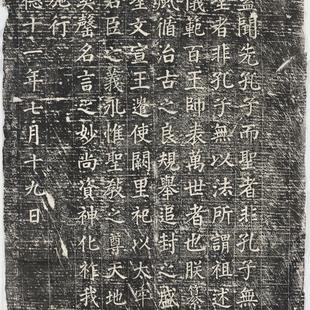 蓋聞先孔子而聖者非孔子無
聖者非孔子無以法所謂祖述
儀範百王師表萬世者也朕纂
風循治古之良規舉追封之盛
聖文宣王遣使闕里祀以大牢
君臣之義永惟聖教之尊天地
奚罄名言之妙尚資神化祚我
施行
德十一年七月十九日